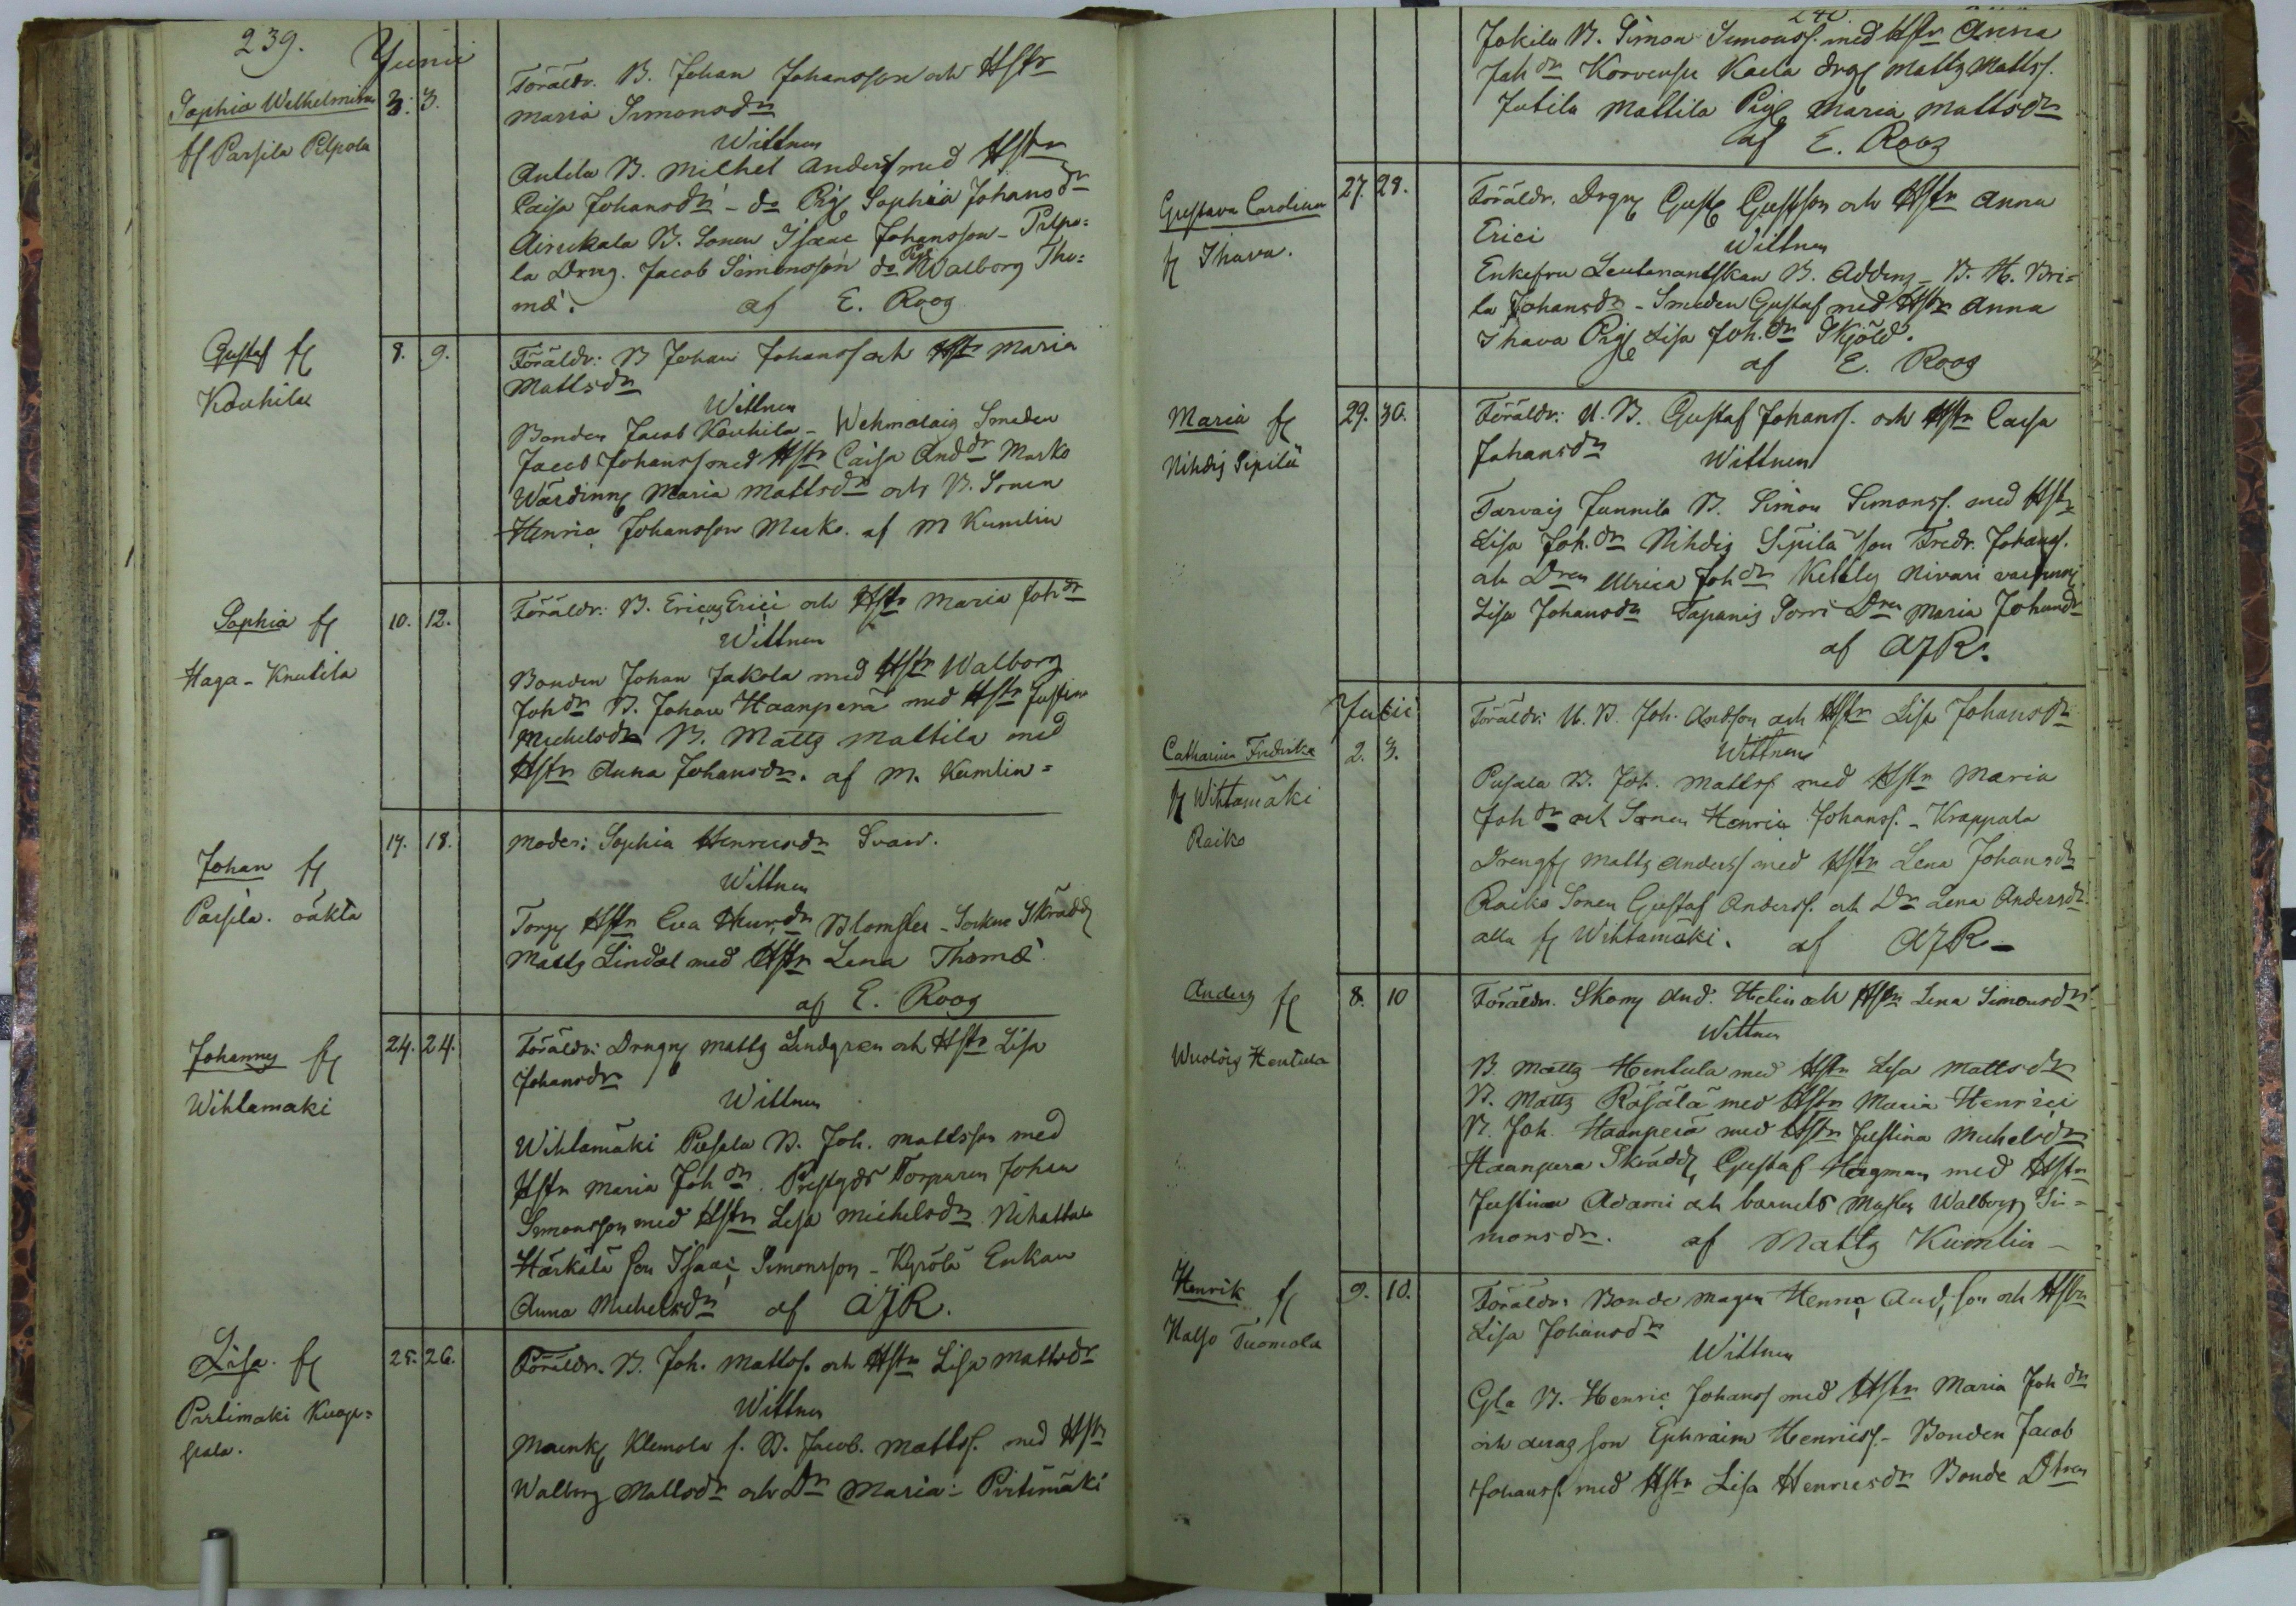 239.
Junii
Sophia Wilhelmina 3. 3.
fr Parsila Pelpola
Föräldr. B. Johan Johansson och Hstr
Maria Simonsdr
Wittnen
Antila B. Michel Anderss med Hstr
Caisa Johansdr - do Pig. Sophia Johansdr
Airikala B. Sonen Isaac Johansson - Pelpo=
la Dreng. Jacob Simonsson do Pig. Walborg Tho=
mæ. af E. Roos
Gustaf fr 8. 9.
Kouhila
Föräldr: B Johan Johanss och Hstr Maria
Mattsdr
Wittnen
Bonden Jacob Kouhila - Wehmalais Smeden
Jacob Johanss med Hstr Caisa Anddr Marko
Wärdinn Maria Mattsdr och B. Sonen
Henric Johansson Marko. af M Kumlin
Sophia fr 10. 12.
Haga - Knutila
Föräldr: B. Ericus Erici och Hstr Maria Johdr
Wittnen
Bonden Johan Jakola med Hstr Walborg
Johdr B. Johan Haanperä med Hstr Justina
Michelsdr B. Matts Mattila med
Hstr Anna Johansdr. af M. Kumlin =
Johan fr 17. 18.
Parsila. oäkta
Moder: Sophia Henricsdr Svan.
Wittnen
Torp Hstr Eva Henrdr Blomster - Sockne Skrädd
Matts Lindal med Hstr Lena Thomæ
af E. Roos
Johannes fr 24. 24.
Wihtamäki
Föräldr: Drengn Matts Lindgren och Hstr Lisa
Johansdr
Wittnen
Wihtamäki Pusala B. Joh. Mattsson med
Hstr Maria Johdr. Prestgds Torparen Johan
Simonsson med Hstr Lisa Michelsdr Nihattula
Härkälä son Isaac Simonsson - Kyrölä Enkan
Anna Michelsdr af AJR.
Lisa. fr 25. 26.
Pirtimäki Kuap=
pala.
Föräldr. B. Joh. Mattss. och Hstr Lisa Mattsdr
Wittnen
Klemola f. B. Jacob. Mattss. med Hstr
Walborg Mattsdr och Dr Maria - Pirtimäki
240.
Jokila B. Simon Simonss. med Hstr Anna
Johdr Korvensu Kaela drng Matts Mattss.
Jutila Mattila Pig Maria Mattsdr
af E. Roos
Gustava Carolina 27. 28.
fr Ihava.
Föräldr. Drgn Gust Gustfson och Hstr Anna
Erici
Wittnen
Enkefru Leutenantskan B. Addens - B. H. Bri=
ta Johansdr - Smeden Gustaf med Hstr Anna
Ihava Pig Lisa Joh.dr Skjöld.
af E. Roos
Maria fr 29. 30.
Nihdis Sipilä
Föräldr: U. B. Gustaf Johanss. och Hstr Caisa
Johansdr
Wittnen
Tarvais Junnila B. Simon Simonss. med Hstr
Lisa Joh.dr Nihdis Sipilä son Fredr. Johanss.
och Dren Ulrica Johdr Nivari
Lisa Johansdr Tapanis Sorri Dren Maria Johansdr
af AJR.
Julii
Catharina Fredrika 2. 3.
fr Wihtamäki
Raiko
Föräldr: U. B. Joh. Andsson och Hstr Lisa Johansdr
Wittnen
Pusala B. Joh. Mattss med Hstr Maria
Johdr och Sonen Henric Johanss. - Krappala
Drengf Matts Anderss med Hstr Lena Johansdr
Raiko Sonen Gustaf Anderss. och Dr Lena Andersdr
alla fr Wihtamäki. af AJR -
Anders fr 8. 10
Wuolais Hentula
Föräldr. Skom And. Helin och Hstr Lena Simonsdr.
Wittnen
B. Matts Hentula med Hstr Lisa Mattsdr
B. Matts Räsälä med Hstr Maria Henrici
B. Joh. Haanperä med Hstr Justina Michelsdr
Haanpera Skrädd, Gustaf Hagman med Hstr
Justina Adami och barnets Moster Walborg Si=
monsdr. af Matts Kumlin -
Henrik fr 9. 10.
Halso Tuomola
Föräldr: Bonde magen Henric And,son och Hstr
Lisa Johansdr
Wittnen
Gla B. Henric Johanss med Hstr Maria Johdr
och deras son Ephraim Henricss. - Bonden Jacob
Johanss. med Hstr Lisa Henricsdr Bonde Dtren